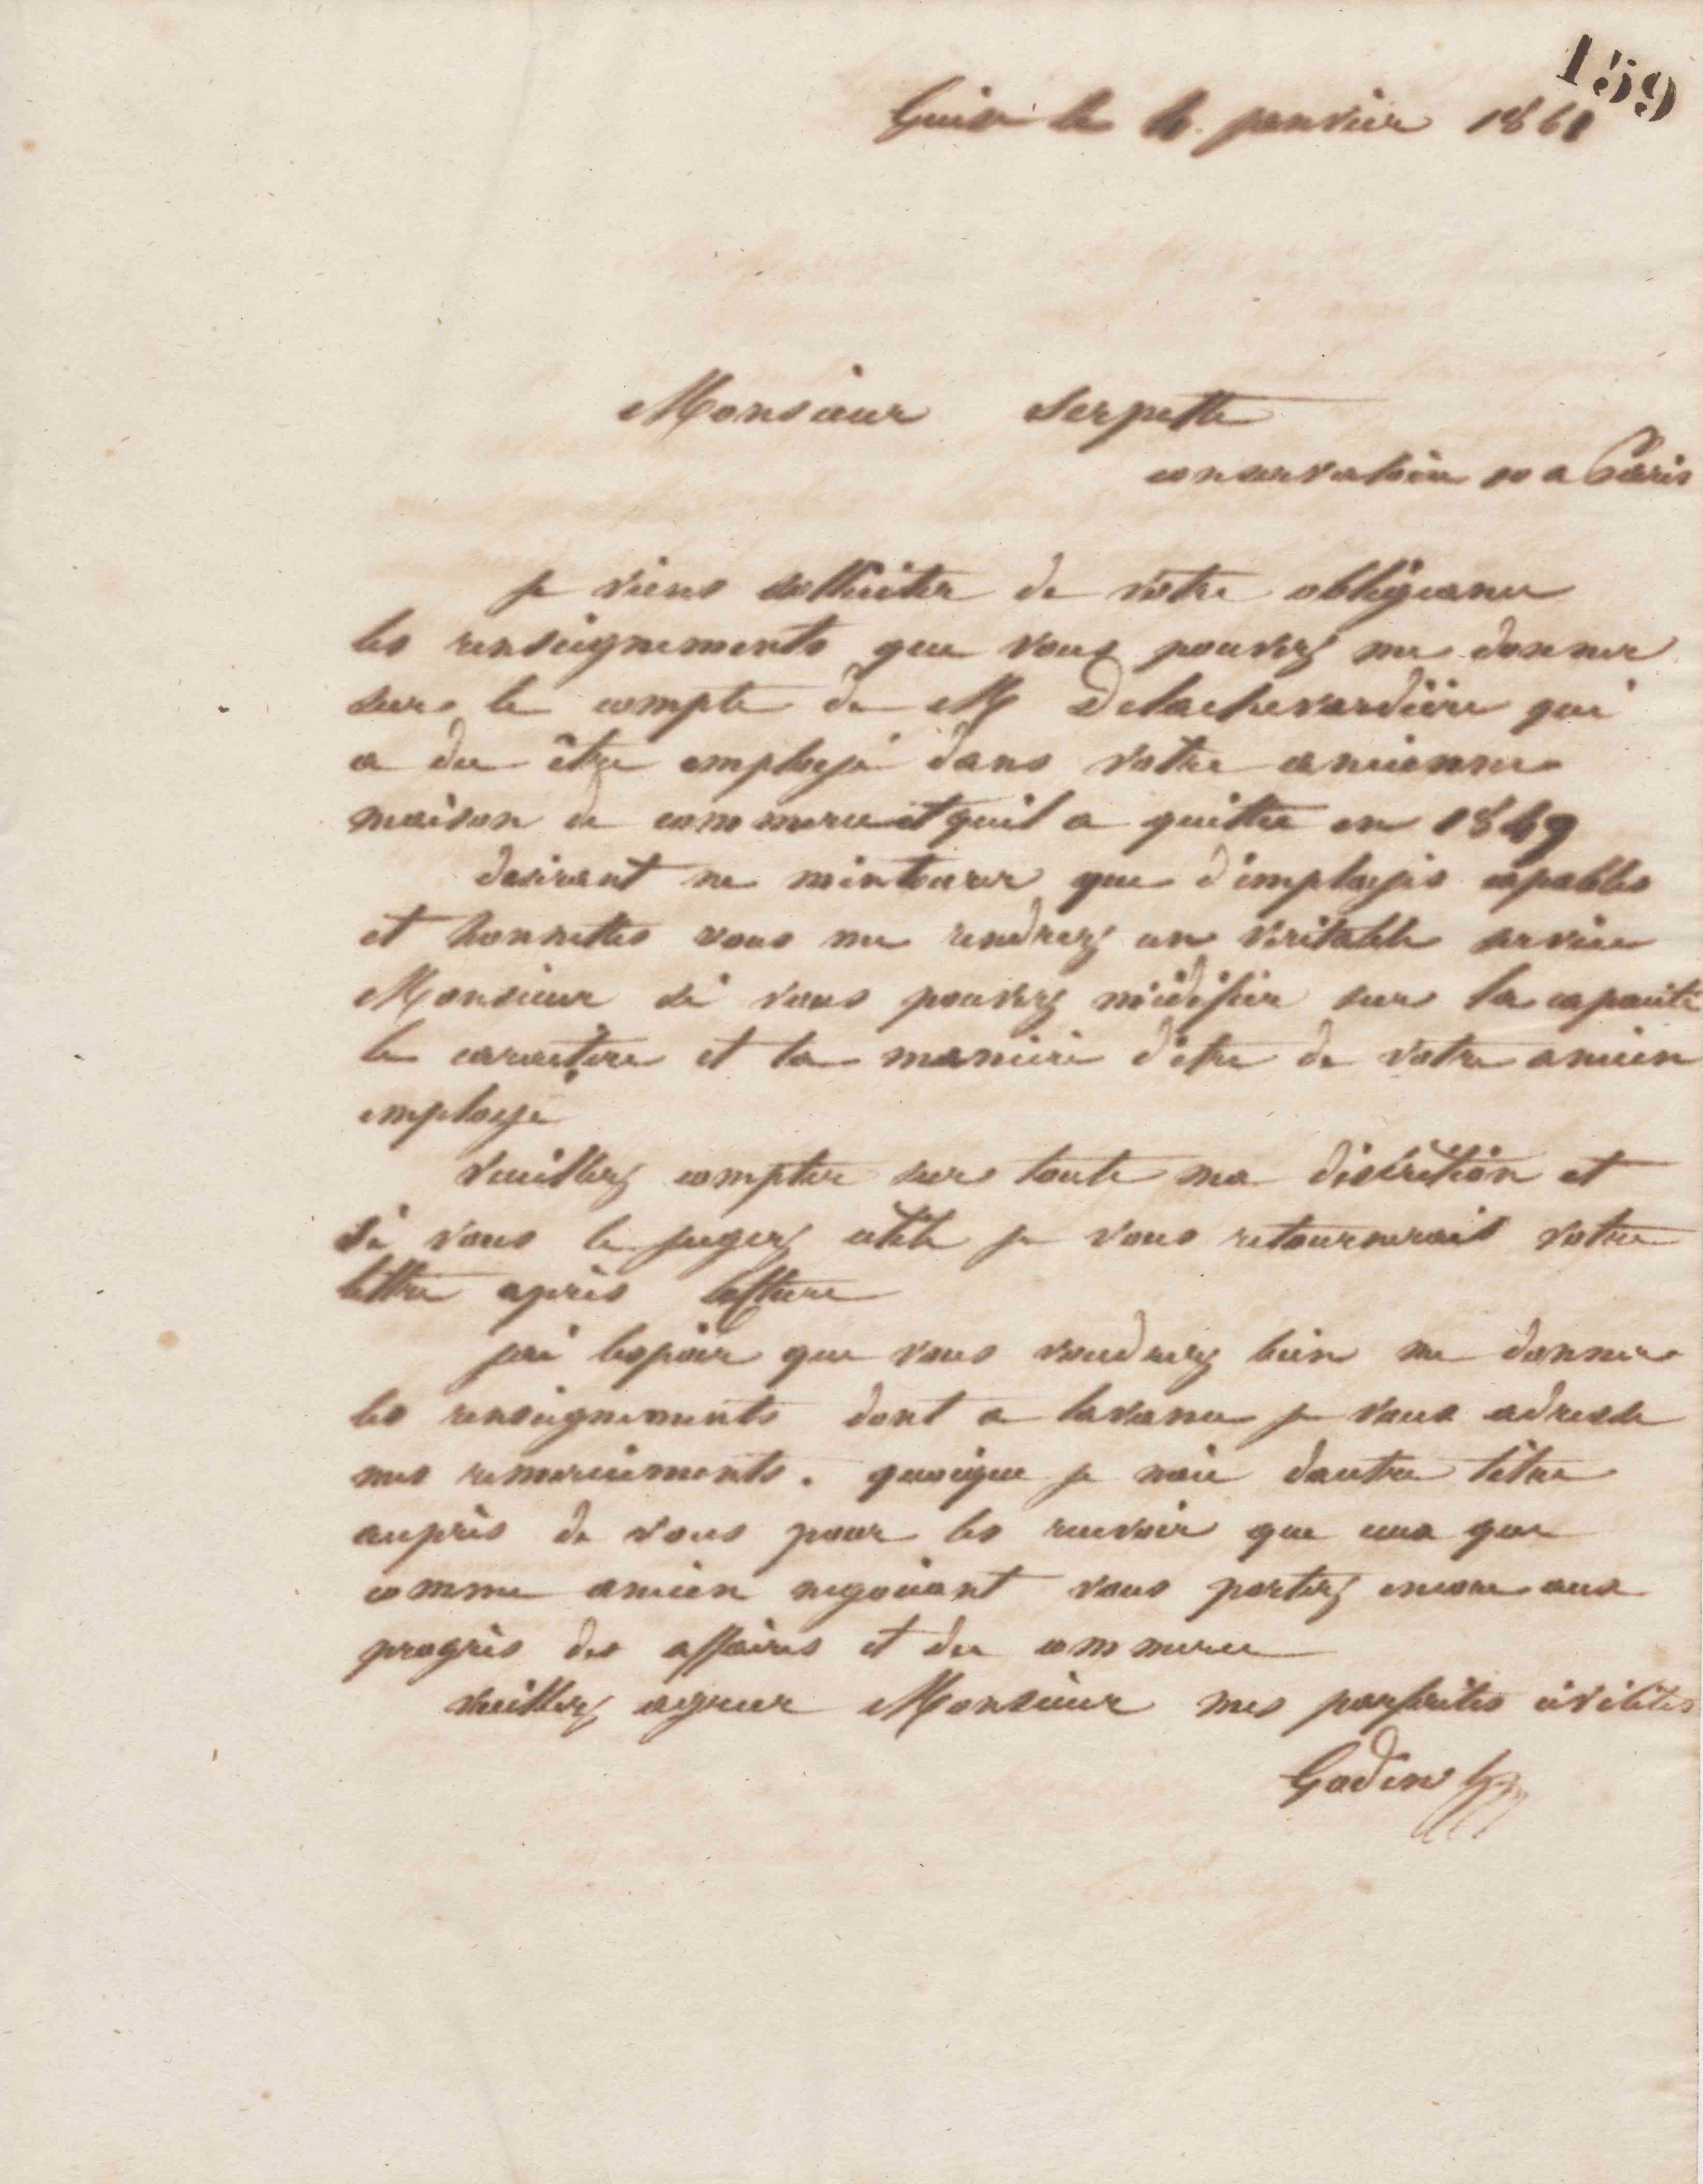 159
Guise le 4 janvier 1861
Monsieur Serpette
conservatoire 10 a Paris
je viens solliciter de votre obligeance
les renseignements que vous pouvez me donner
sur le compte de M Delachevardière qui
a du être employé dans votre ancienne
maison de commerce et quil a quittée en 1849
desirant ne mintourer que d'employés capables
et honnettes vous me rendrez un veritable service
Monsieur si vous pouvez m'édifier sur la capacité
le caractere et la manière d'etre de votre ancien
employé
Veuillez compter sur toute ma discrétion et
si vous le jugez utile je vous retournerais votre
lettre après lecture
jai lespoir que vous voudrez bien me donner
les renseignements dont a lavance je vous adresse
mes remerciements. quoique je naie dautre titre
auprès de vous pour les recevoir que ceux que
comme ancien negociant vous portez encore aux
progrès des affaires et du commerce
Veuillez agreer Monsieur mes parfaites civilités
Godin